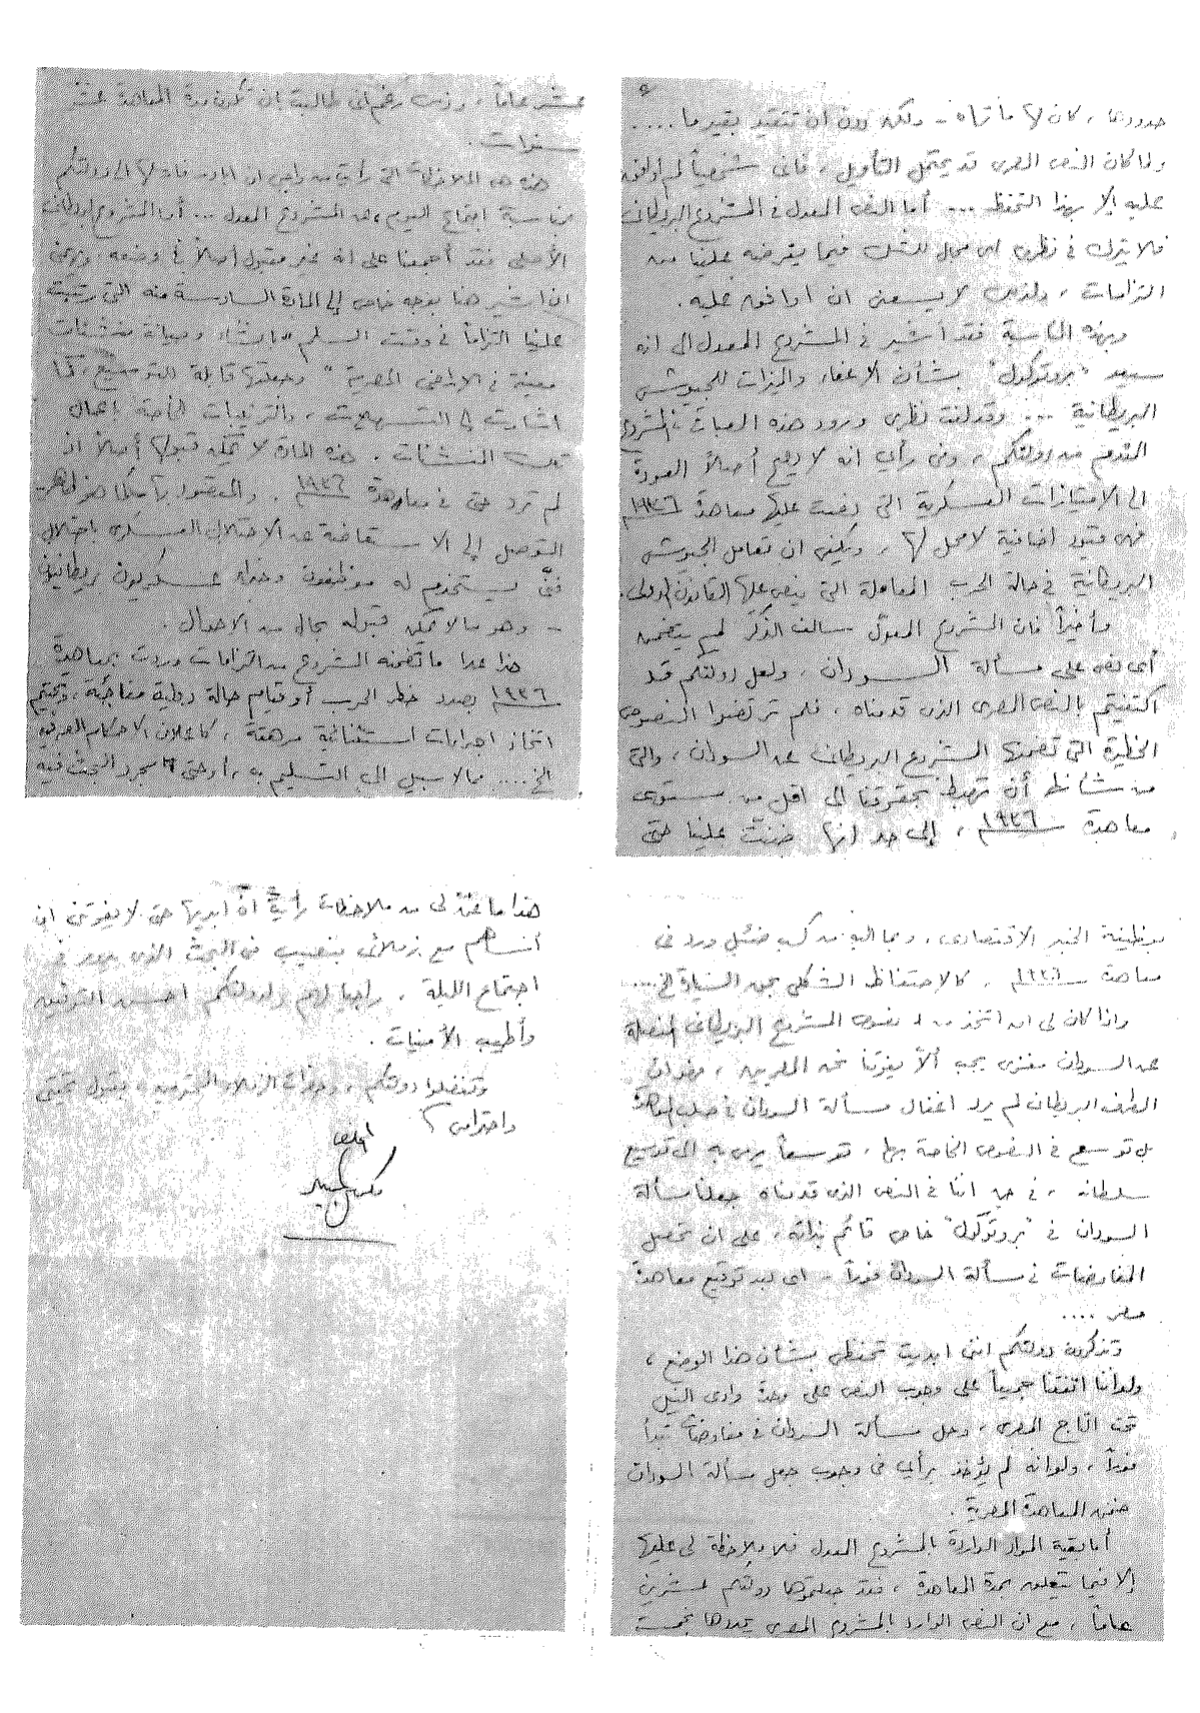 حدودها، كان لها ما تراه - ولكن دون ان تتقيد بغيرها ....
ولما كان النص المصرى قد يحتمل التأويل، فانى شخصياً لم أوافق
عليه إلا بهذا التحفظ ... أما النص المعدل فى المشروع البريطانى
فلا يترك فى نظرى اى مجال للشك فيما يفرضه علينا من
التزامات، ولذلك لا يسعنى ان اوافق عليه.
وبهذه المناسبة فقد أشير فى المشروع المعدل الى انه
سيعد "بروتوكول" بشأن الاعفاء والميزات للجيوش
البريطانية ... وقد لفت نظرى ورود هذه العبارة بالمشروع
المقدم من دولتكم، وفى رأيى انه لا يصح أصلاً العودة
الى الامتيازات العسكرية التى نصت عليها معاهدة ١٩٣٦
فهى قيود اضافية لا محل لها، ويكفى ان تعامل الجيوش
البريطانية فى حالة الحرب المعاملة التى ينص عليها القانون الدولى.
وأخيراً فان المشروع المعدل سالف الذكر لم يتضمن
أى نص على مسألة السودان، ولعل دولتكم قد
اكتفيتم بالنص المصرى الذى قدمناه، فلم ترتضوا النصوص
الخطيرة التى تضمنها المشروع البريطانى عن السودان، والتى
من شأنها أن تهبط بحقوقنا الى اقل من مستوى
معاهدة ١٩٣٦، إلى حد انها ضنت علينا حتى
بوظيفة الخبير الاقتصادى، وبما اليه من كسب ضئيل ورد فى
معاهدة ١٩٣٦، كالاحتفاظ الشكلى بحق السيادة الخ ....
واذا كان لى ان اتخذ من نصوص المشروع البريطانى المنفصلة
عن السودان مغزى يجب ألا يفوتنا نحن المصريين، فهو ان
الطرف البريطانى لم يرد اغفال مسألة السودان فى صلب المعاهدة
بل توسع فى النصوص الخاصة بها، توسعاً يرمى به الى توسيع
سلطانه، فى حين اننا فى النص الذى قدمناه جعلنا مسألة
السودان فى "بروتوكول" خاص قائم بذاته، على ان تحصل
المفاوضات فى مسألة السودان فوراً - اى بعد توقيع معاهدة
مصر ....
وتذكرون دولتكم اننى ابديت تحفظى بشأن هذا الوضع،
ولو اننا اتفقنا جميعاً على وجوب النص على وحدة وادى النيل
تحت التاج المصرى، وحل مسألة السودان فى مفاوضات تبدأ
فوراً، ولو انه لم يؤخذ برأيى فى وجوب جعل مسألة السودان
ضمن المعاهدة المصرية.
أما بقية المواد الواردة بالمشروع المعدل فلا ملاحظة لى عليها
إلا فيما يتعلق بمدة المعاهدة، فقد جعلتموها دولتكم عشرين
عاماً، مع ان النص الوارد بالمشروع المصرى يحددها بخمسة
عشر عاماً، وذلك رغم انى طالبت ان تكون مدة المعاهدة عشر
سنوات.
هذه هى الملاحظات التى رأيت من واجبى ان ابادر بها الى دولتكم
بمناسبة اجتماع اليوم، عن المشروع المعدل ... أما المشروع البريطانى
الأصلى فقد أجمعنا على انه غير مقبول اصلاً فى وضعه، ويهمنى
ان اشير هنا بوجه خاص إلى المادة السادسة منه التى رتبت
علينا التزاماً فى وقت السلم "بانشاء وصيانة منشئات
معينة فى الاراضى المصرية" وجعلتها قابلة للتوسيع، كما
اشارت إلى التسهيلات، والترتيبات الخاصة باعمال
تلك المنشئات. هذه المادة لا يمكن قبولها أصلاً اذ
لم ترد حتى فى معاهدة ١٩٣٦. والمقصود بأحكامها
التوصل إلى الاستعاضة عن الاحتلال العسكرى باحتلال
فنّى يستخدم له موظفون وخبراء عسكريون بريطانيون
- وهو ما لا يمكن قبوله بحال من الاحوال.
هذا عدا ما تضمنه المشروع من التزامات وردت بمعاهدة
١٩٣٦ بصدد خطر الحرب أو قيام حالة دولية مفاجئة، وتحتم
اتخاذ اجراءات استثنائية مرهقة، كاعلان الاحكام العرفية
الخ .... مما لا سبيل الى التسليم به، أو حتى لمجرد البحث فيه
هذا ما عنّ لى من ملاحظات رأيت أن أبديها حتى لا يفوتنى ان
أساهم مع زملائى بنصيب فى البحث الذى يدور فى
اجتماع الليلة، راجياً لهم ولدولتكم احسن التوفيق
وأطيب الأمنيات.
وتفضلوا دولتكم، وحضرات الزملاء المحترمين، بقبول تحيتى
واحترامى
المخلص
مكرم عبيد